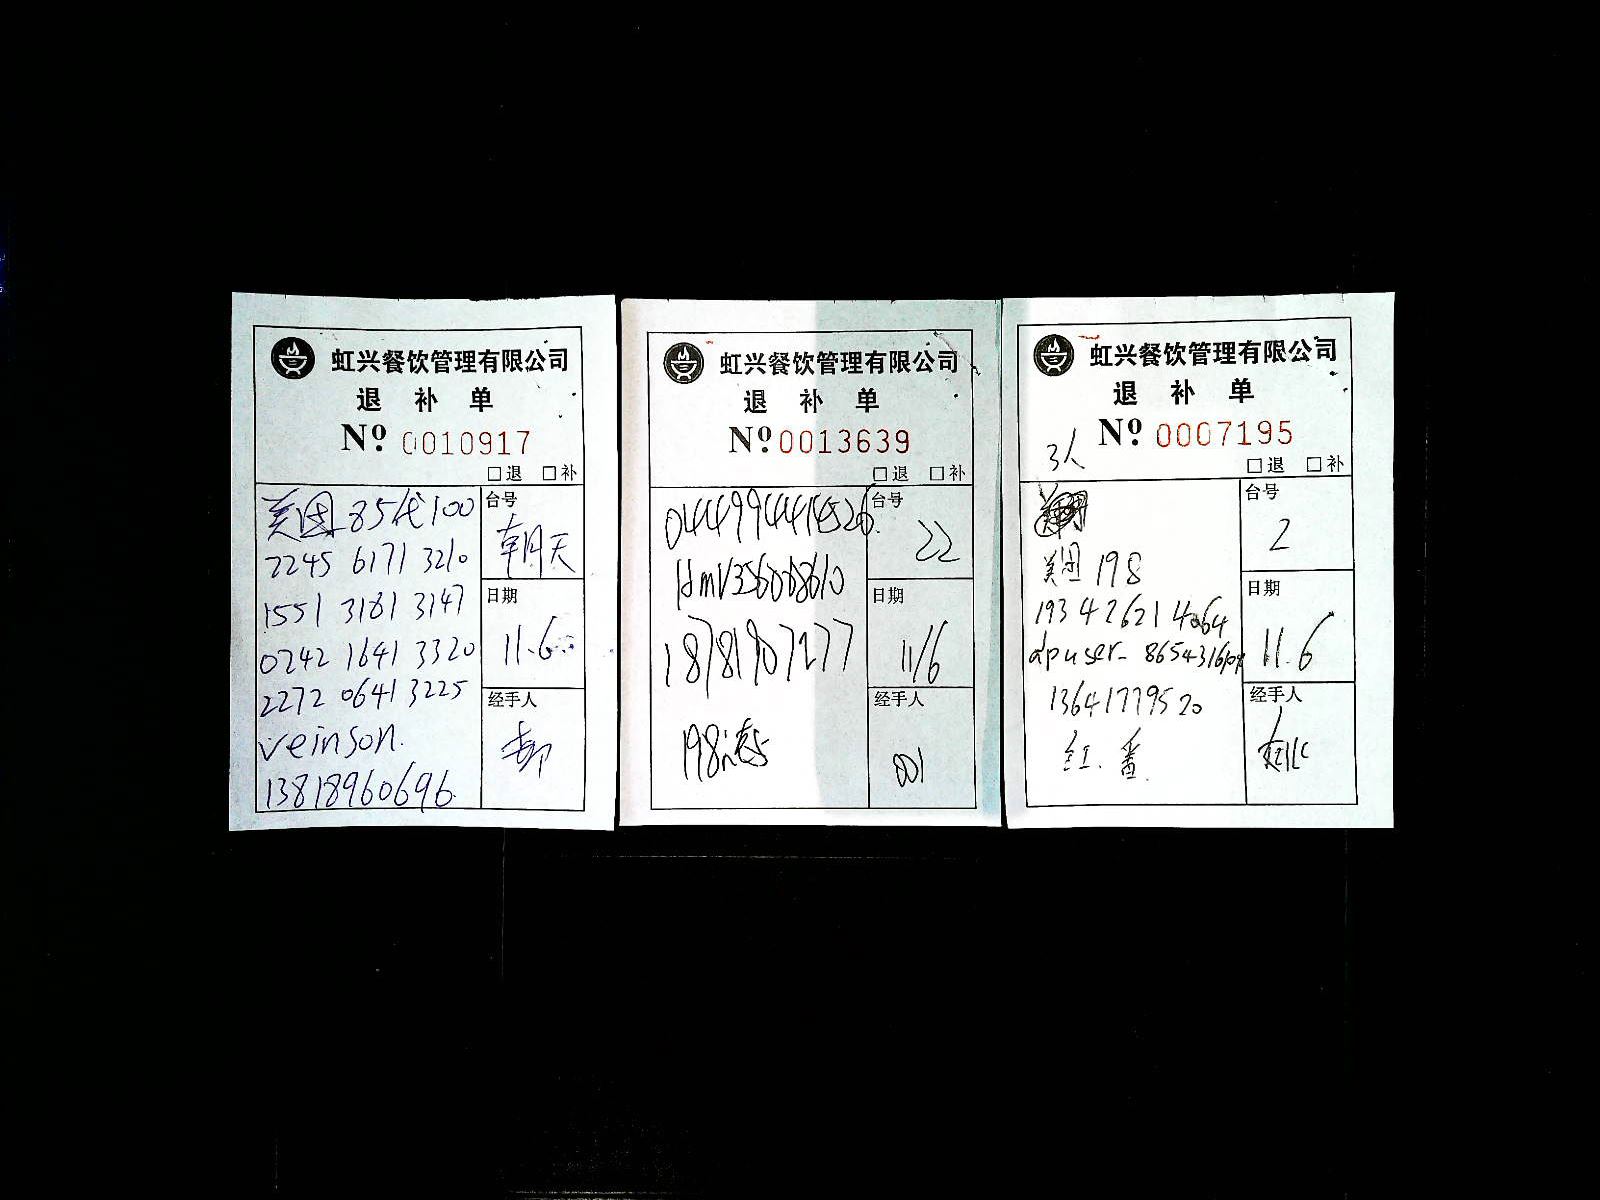 虹兴餐饮管理有限公司
退 补 单
Nº 0010917
□退 □补
美团85代100
7245 6171 3210
1551 3181 3147
0242 1641 3320
2272 0641 3225
veinson.
13818960696
台号
朝天
日期
11.6
经手人
虹兴餐饮管理有限公司
退 补 单
Nº 0013639
□退 □补
18781907277
台号
22
日期
11/6
经手人
001
虹兴餐饮管理有限公司
退 补 单
Nº 0007195
3人
□退 □补
美团 198
193 4 2621 4064
13641779520
红. 番.
台号
2
日期
11.6
经手人